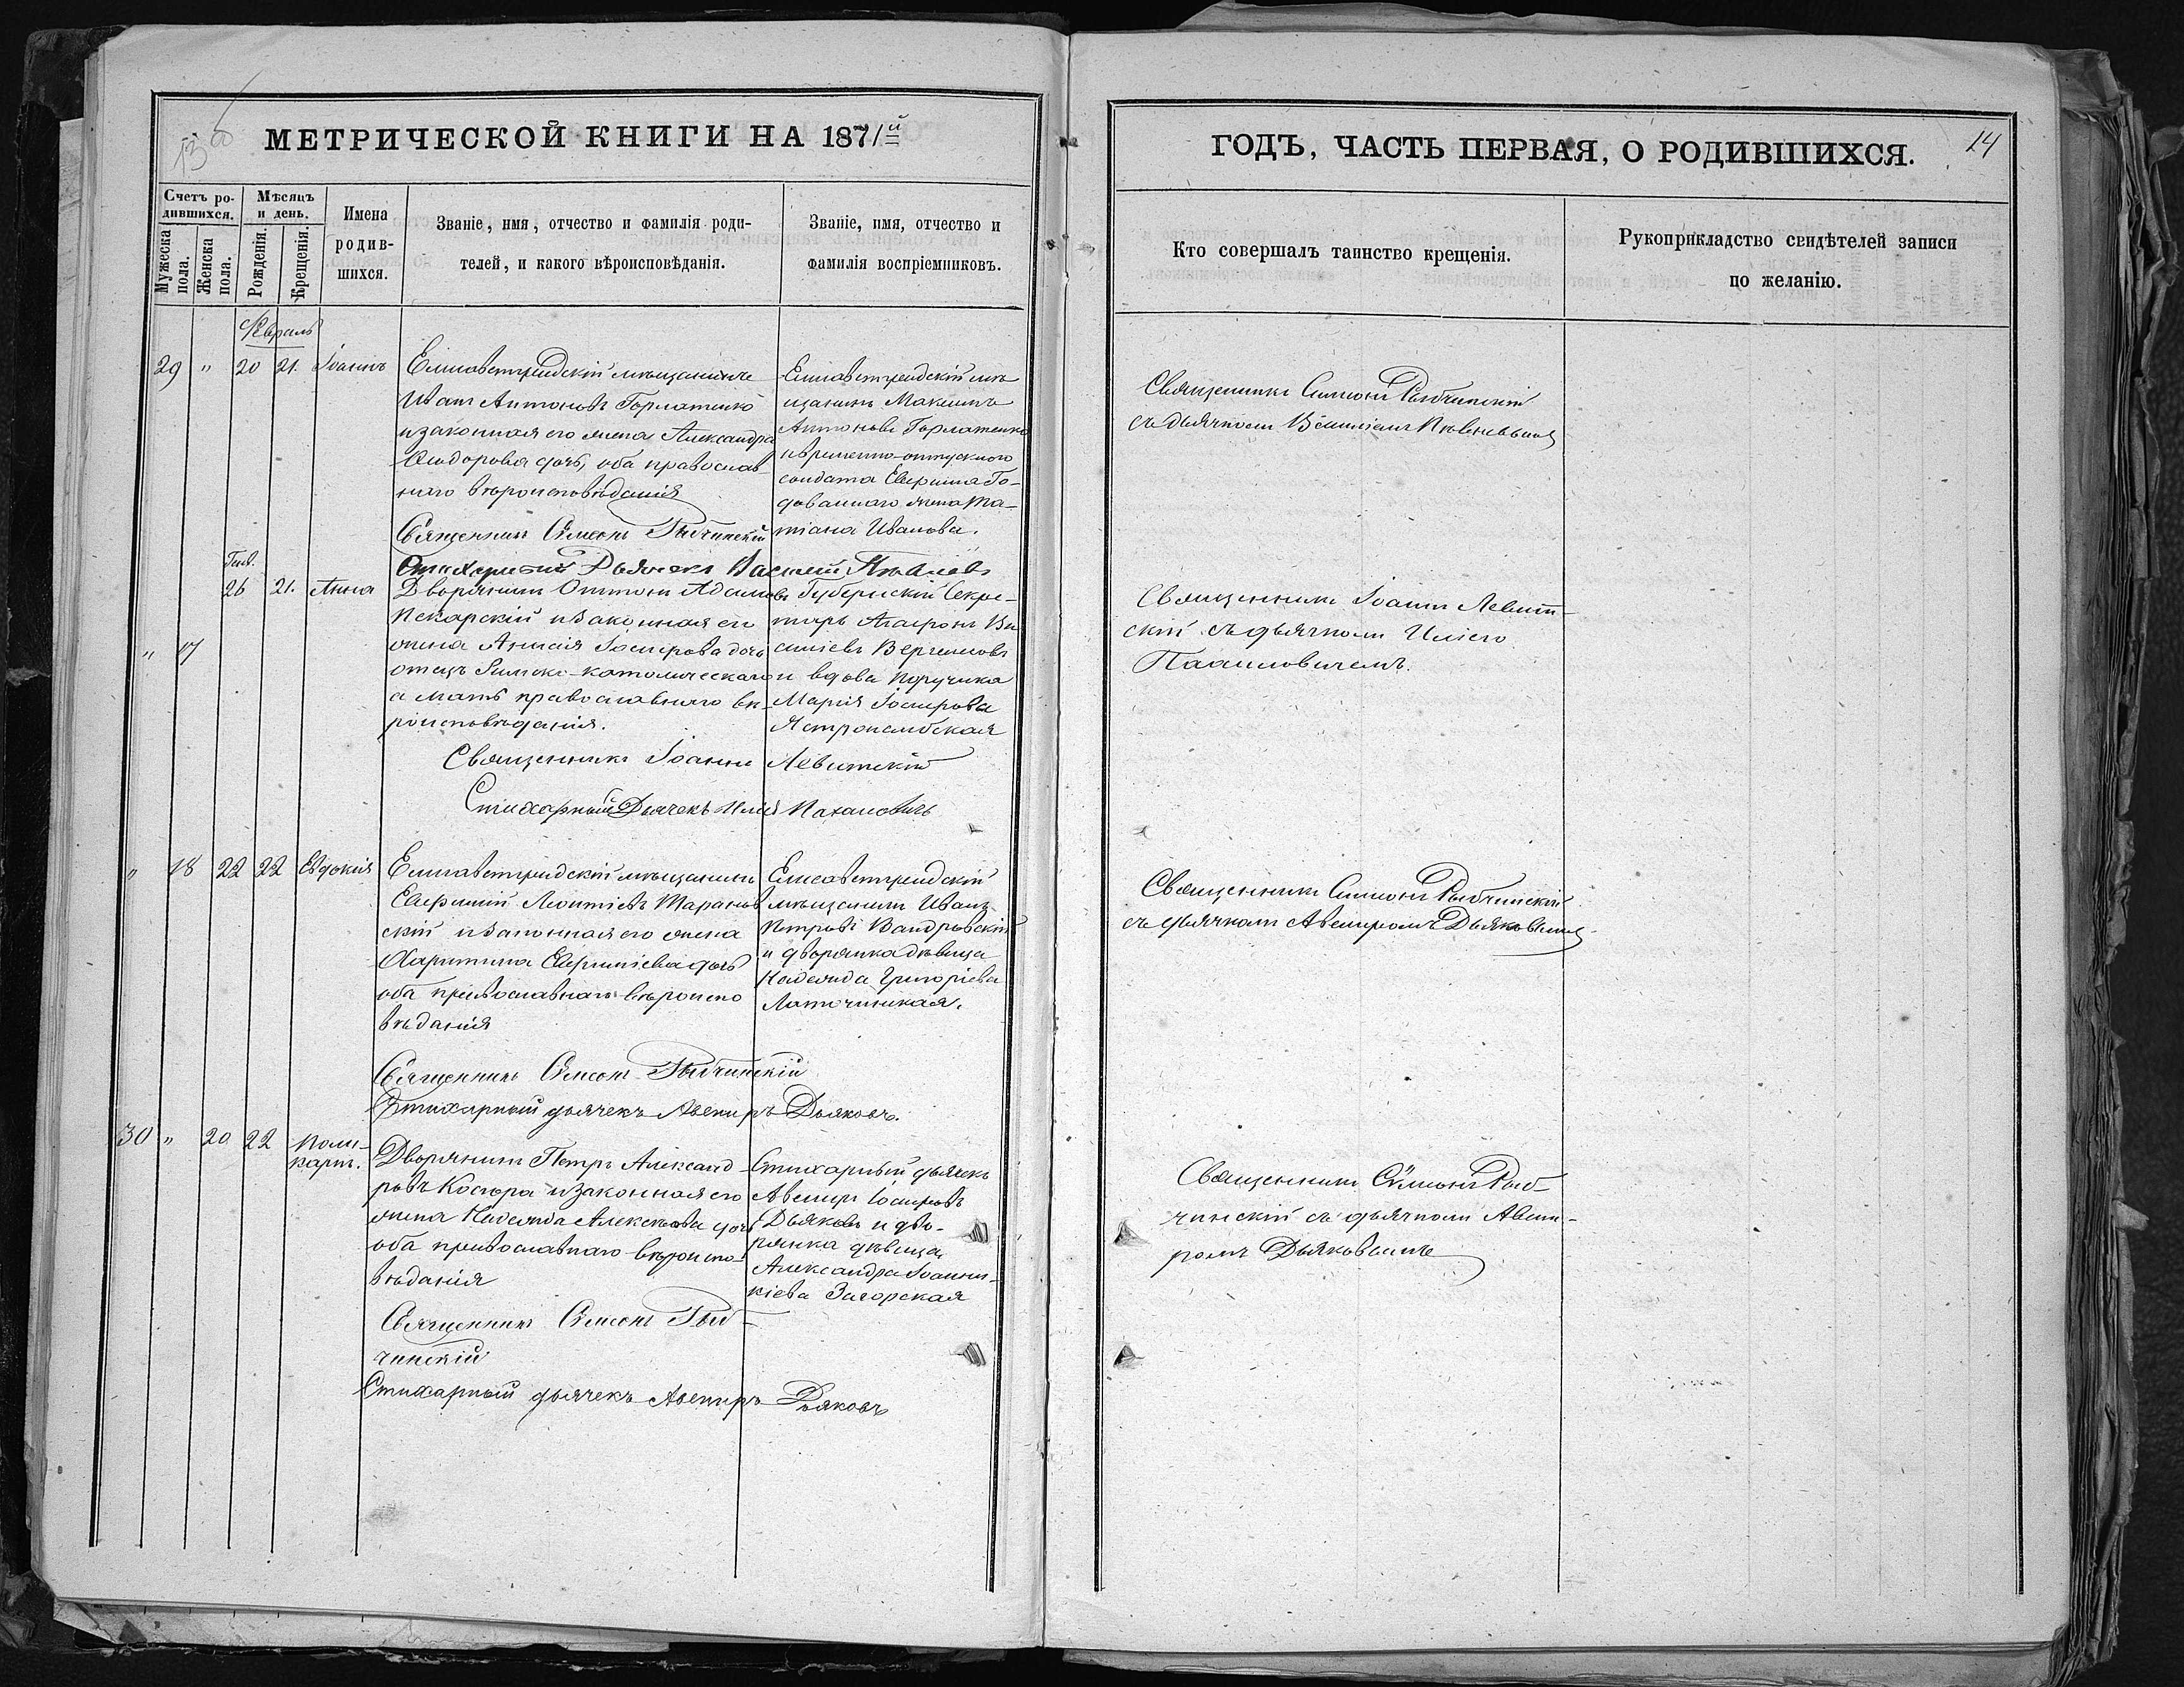 МЕТРИЧЕСКОЙ КНИГИ НА 1871й
Счетъ ро-
дившихся.
Мужеска
пола.
Женска
пола.
Мѣсяцъ
и день.
Рожденія.
Крещенія.
Имена
родив-
шихся.
Званіе, имя, отчество и фамилія роди-
телей, и какого вѣроисповѣданія.
Званіе, имя, отчество и
фамилія воспріемниковъ.
Февраль
29 " 20 21. Іоаннъ
Елисаветградскій мѣщанинъ
Иванъ Антоновъ Горлатенко
и законная его жена Александра
Ѳеодорова дочь, оба православ-
наго вѣроисповѣданія
Священникъ Симеонъ Рыбчинскій
Стихарный Дьячекъ Василій
Елисаветградскій мѣ
щанинъ Максимъ
Антоновъ Горлатенко
и временно-отпускного
солдата Евфима Го-
дованнаго жена Та-
тіана Иванова.
Генв.
" 17 26 21. Анна
Дворянинъ Оттонъ Адамовъ
Пекарскій и законная его
жена Анисія Іосифова дочь
отецъ Римско-католическаго
а мать православнаго вѣ-
роисповѣданія.
Священникъ Іоаннъ Левитскій
Стихарный Дьячекъ Илія Пахаловичъ
Губернскій Секре-
тарь Агафонъ Ва
силіевъ
и вдова Поручика
Марія Іосифова
Ястрожембская
" 18 22 22 Евдокія
Елисаветградскій мѣщанинъ
Евфимій Леонтіевъ Таранов
скій и законная его жена
Харитина Евфиміева дочь
оба православнаго вѣроиспо
вѣданія
Священникъ Симеонъ Рыбчинскій
Стихарный дьячекъ Авениръ Дьяковъ.
Елисаветградскій
мѣщанинъ Иванъ
Петровъ Вандровскій
и дворянка дѣвица
Надежда Григоріева
Латочинская.
30 " 20 22 Поли-
карпъ.
Дворянинъ Петръ Александ-
ровъ Косюра и законная его
жена Надежда Алексѣева дочь
оба православнаго вѣроиспо-
вѣданія
Священникъ Симеонъ Рыб-
чинскій
Стихарный дьячекъ Авениръ Дьяковъ
Стихарный дьячекъ
Авениръ Іосифовъ
Дьяковъ и дво-
рянка дѣвица
Александра Іоанни-
кіева Загорская
ГОДЪ, ЧАСТЬ ПЕРВАЯ, О РОДИВШИХСЯ.
14
Кто совершалъ таинство крещенія.
Рукоприкладство свидѣтелей записи
по желанію.
Священникъ Симеонъ Рыбчинскій
съ дьячкомъ Василіемъ
Священникъ Іоаннъ Левит-
скій съ дьячкомъ Иліею
Пахаловичемъ.
Священникъ Симеонъ Рыбчинскій
съ дьячкомъ Авениромъ Дьяковымъ
Священникъ Симеонъ Рыб-
чинскій съ дьячкомъ Авени-
ромъ Дьяковымъ